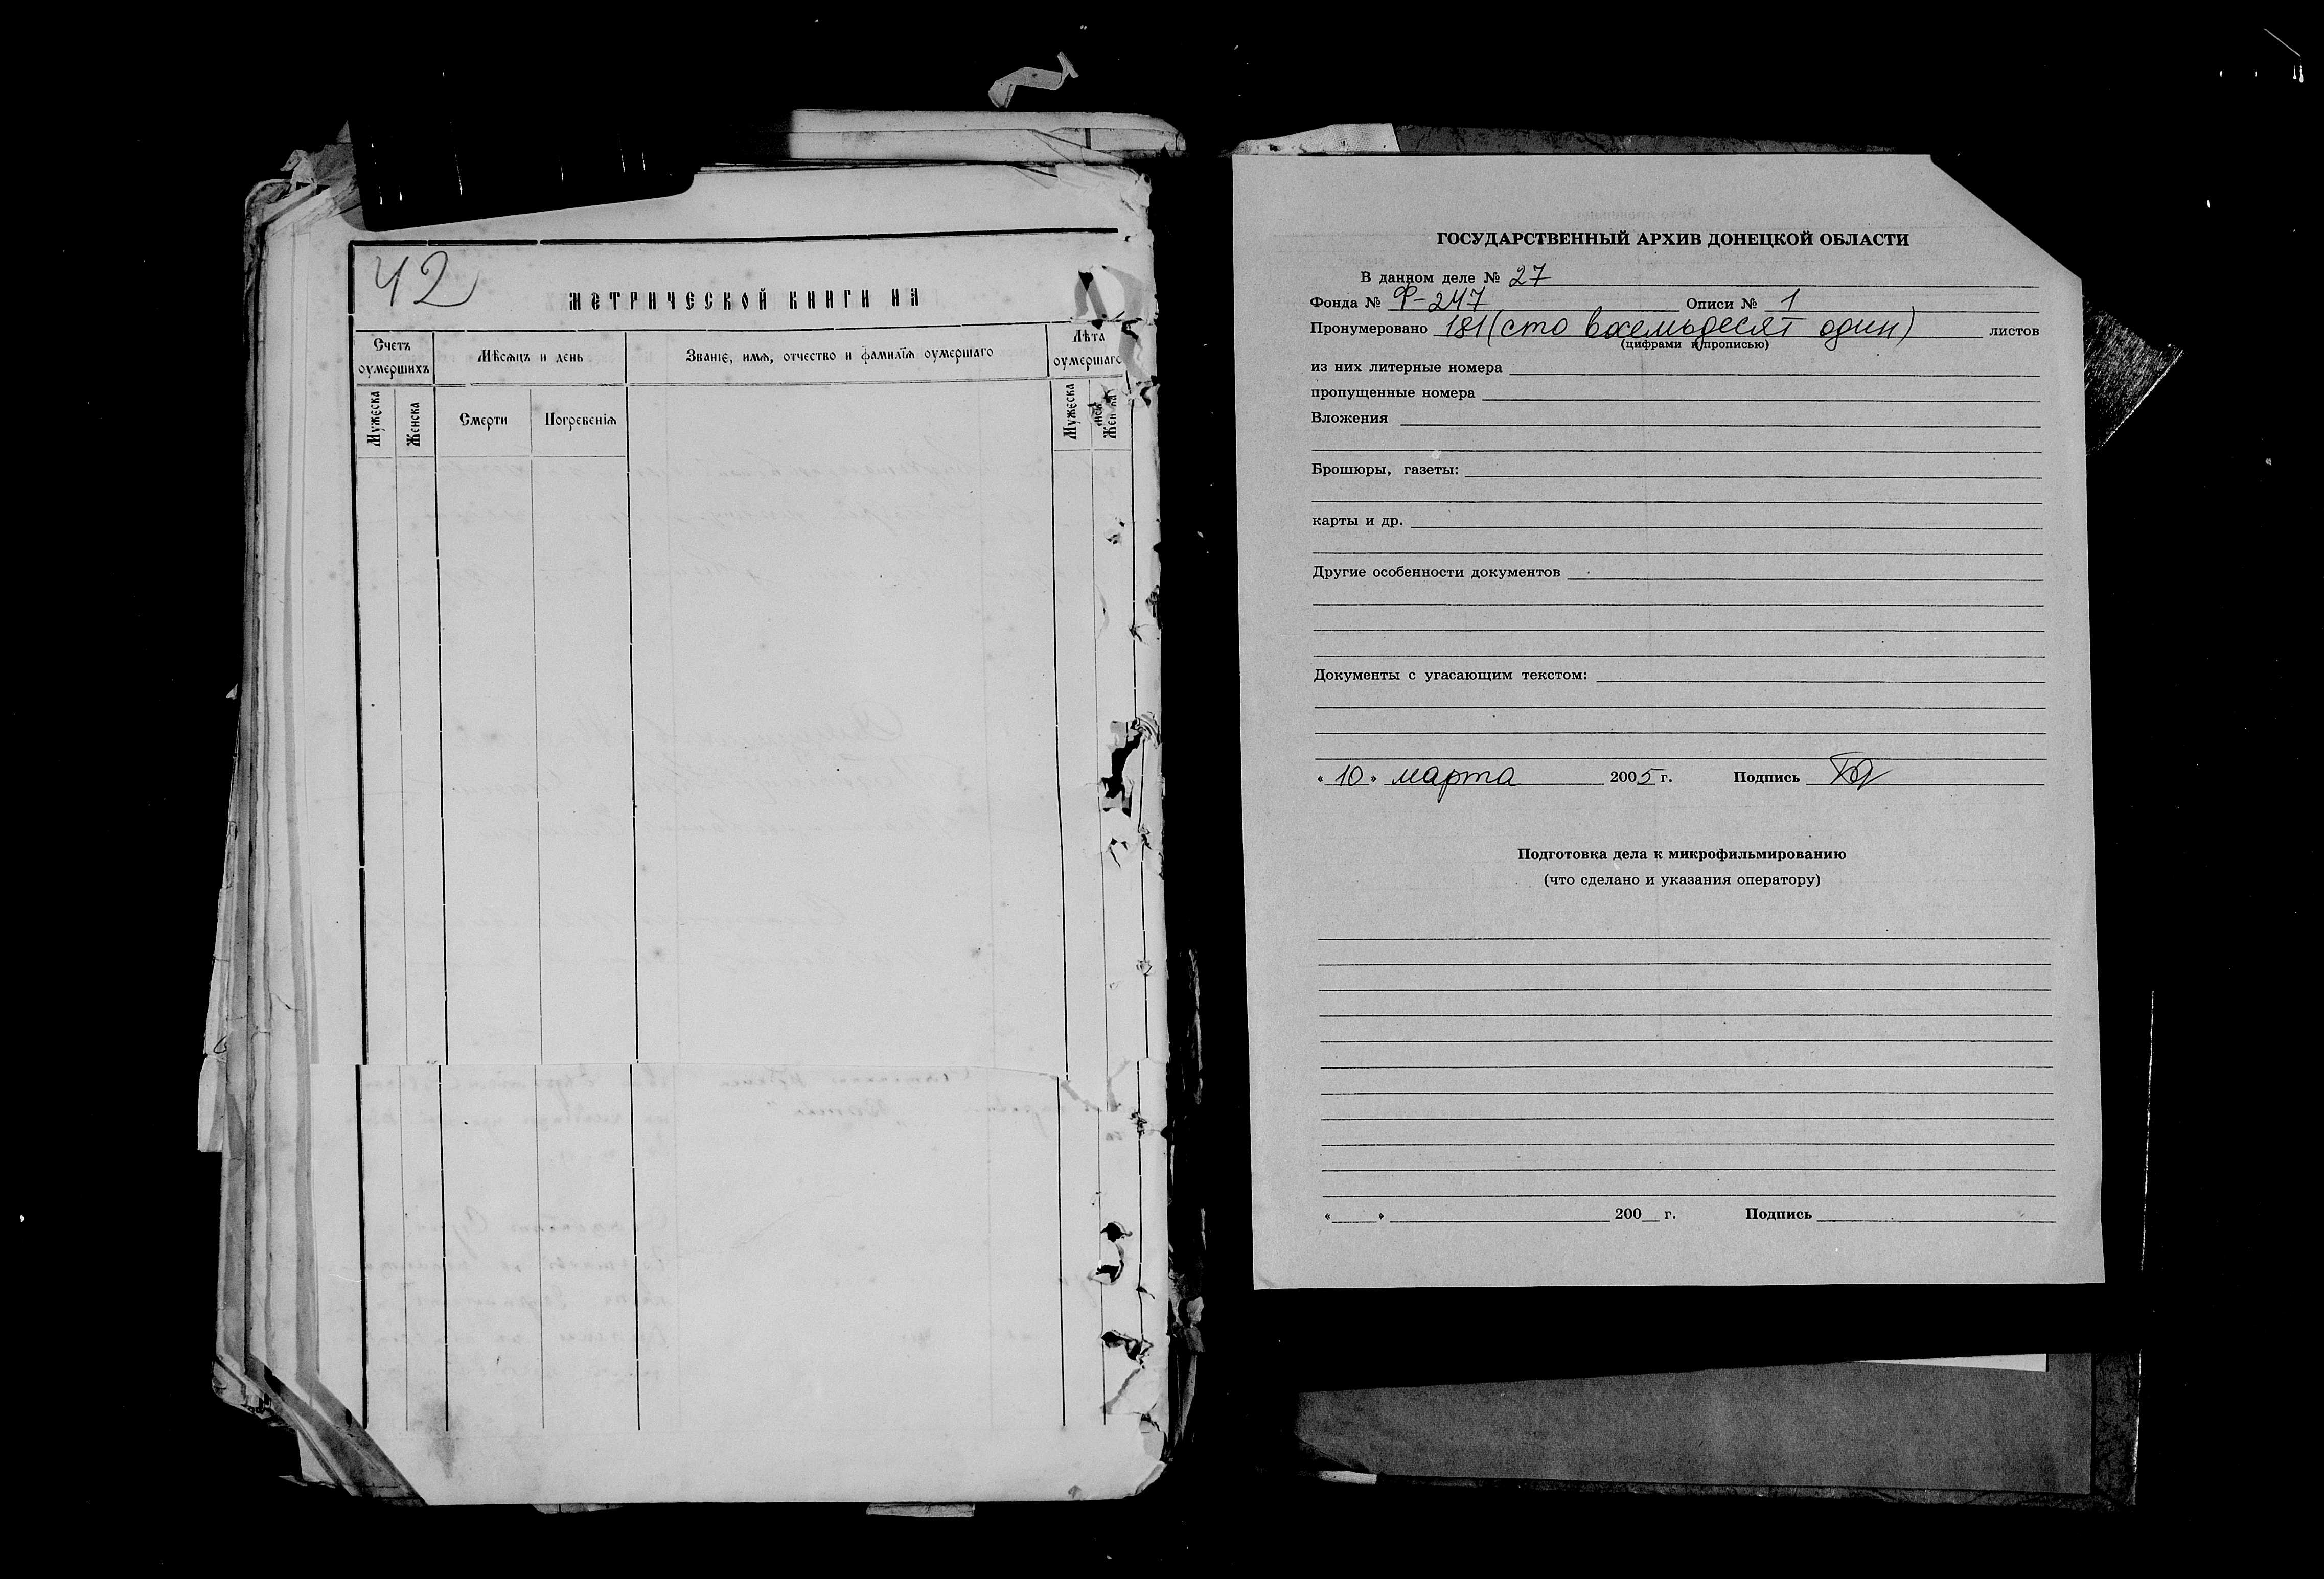 42
МЕТРИЧЕСКОЙ КНИГИ НА
Счетъ оумершихъ
Мѣсяцъ и день
Званіе, имя, отчество и фамилія оумершаго
Лѣта оумершаго
Мужеска
Женска
Смерти
Погребенія
Мужеска
Женска
ГОСУДАРСТВЕННЫЙ АРХИВ ДОНЕЦКОЙ ОБЛАСТИ
В данном деле № 27
Фонда № Ф-247 Описи № 1
Пронумеровано 181 (сто восемьдесят один) листов
(цифрами и прописью)
из них литерные номера
пропущенные номера
Вложения
Брошюры, газеты:
карты и др.
Другие особенности документов
Документы с угасающим текстом:
« 10 » марта 2005 г. Подпись
Подготовка дела к микрофильмированию
(что сделано и указания оператору)
« » 200 г. Подпись